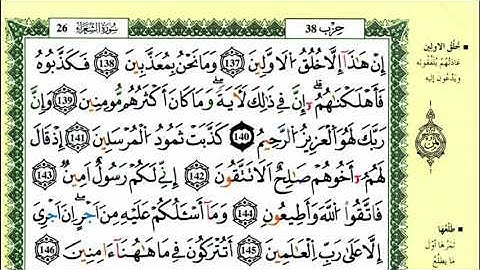 26 سُورَةُ الشُّعَرَاءِ
حِزْب 38
إِنْ هَٰذَا إِلَّا خُلُقُ اُ۬لَاوَّلِينَ 137 وَمَا نَحْنُ بِمُعَذَّبِينَ 138 فَكَذَّبُوهُ
فَأَهْلَكْنَٰهُمُۥٓ إِنَّ فِے ذَٰلِكَ لَأٓيَةٗ وَمَا كَانَ أَكْثَرُهُم مُّومِنِينَ 139 وَإِنَّ
رَبَّكَ لَهُوَ اَ۬لْعَزِيزُ اُ۬لرَّحِيمُ 140 كَذَّبَتْ ثَمُودُ اُ۬لْمُرْسَلِينَ 141 إِذْ قَالَ
لَهُمُۥٓ أَخُوهُمْ صَٰلِحٌ اَلَا تَتَّقُونَ 142 إِنِّے لَكُمْ رَسُولٌ اَمِينٞ 143
فَاتَّقُوا اُ۬للَّهَ وَأَطِيعُونِ 144 وَمَآ أَسْـَٔلُكُمْ عَلَيْهِ مِنَ اَجْرٍ اِنَ اَجْرِيَ
إِلَّا عَلَىٰ رَبِّ اِ۬لْعَٰلَمِينَ 145 أَتُتْرَكُونَ فِے مَا هَٰهُنَآ ءَامِنِينَ 146
خُلُقُ الاولين
عَادَتُهُمْ يُلَفِّقُونَهُ
وَيَدْعُونَ إِلَيْهِ
طَلْعُهَا
ثَمَرُهَا أَوَّلَ
مَا يَطْلُعُ